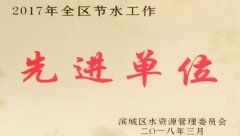 2017年全区节水工作
先进单位
滨城区水资源管理委员会
二〇一八年三月